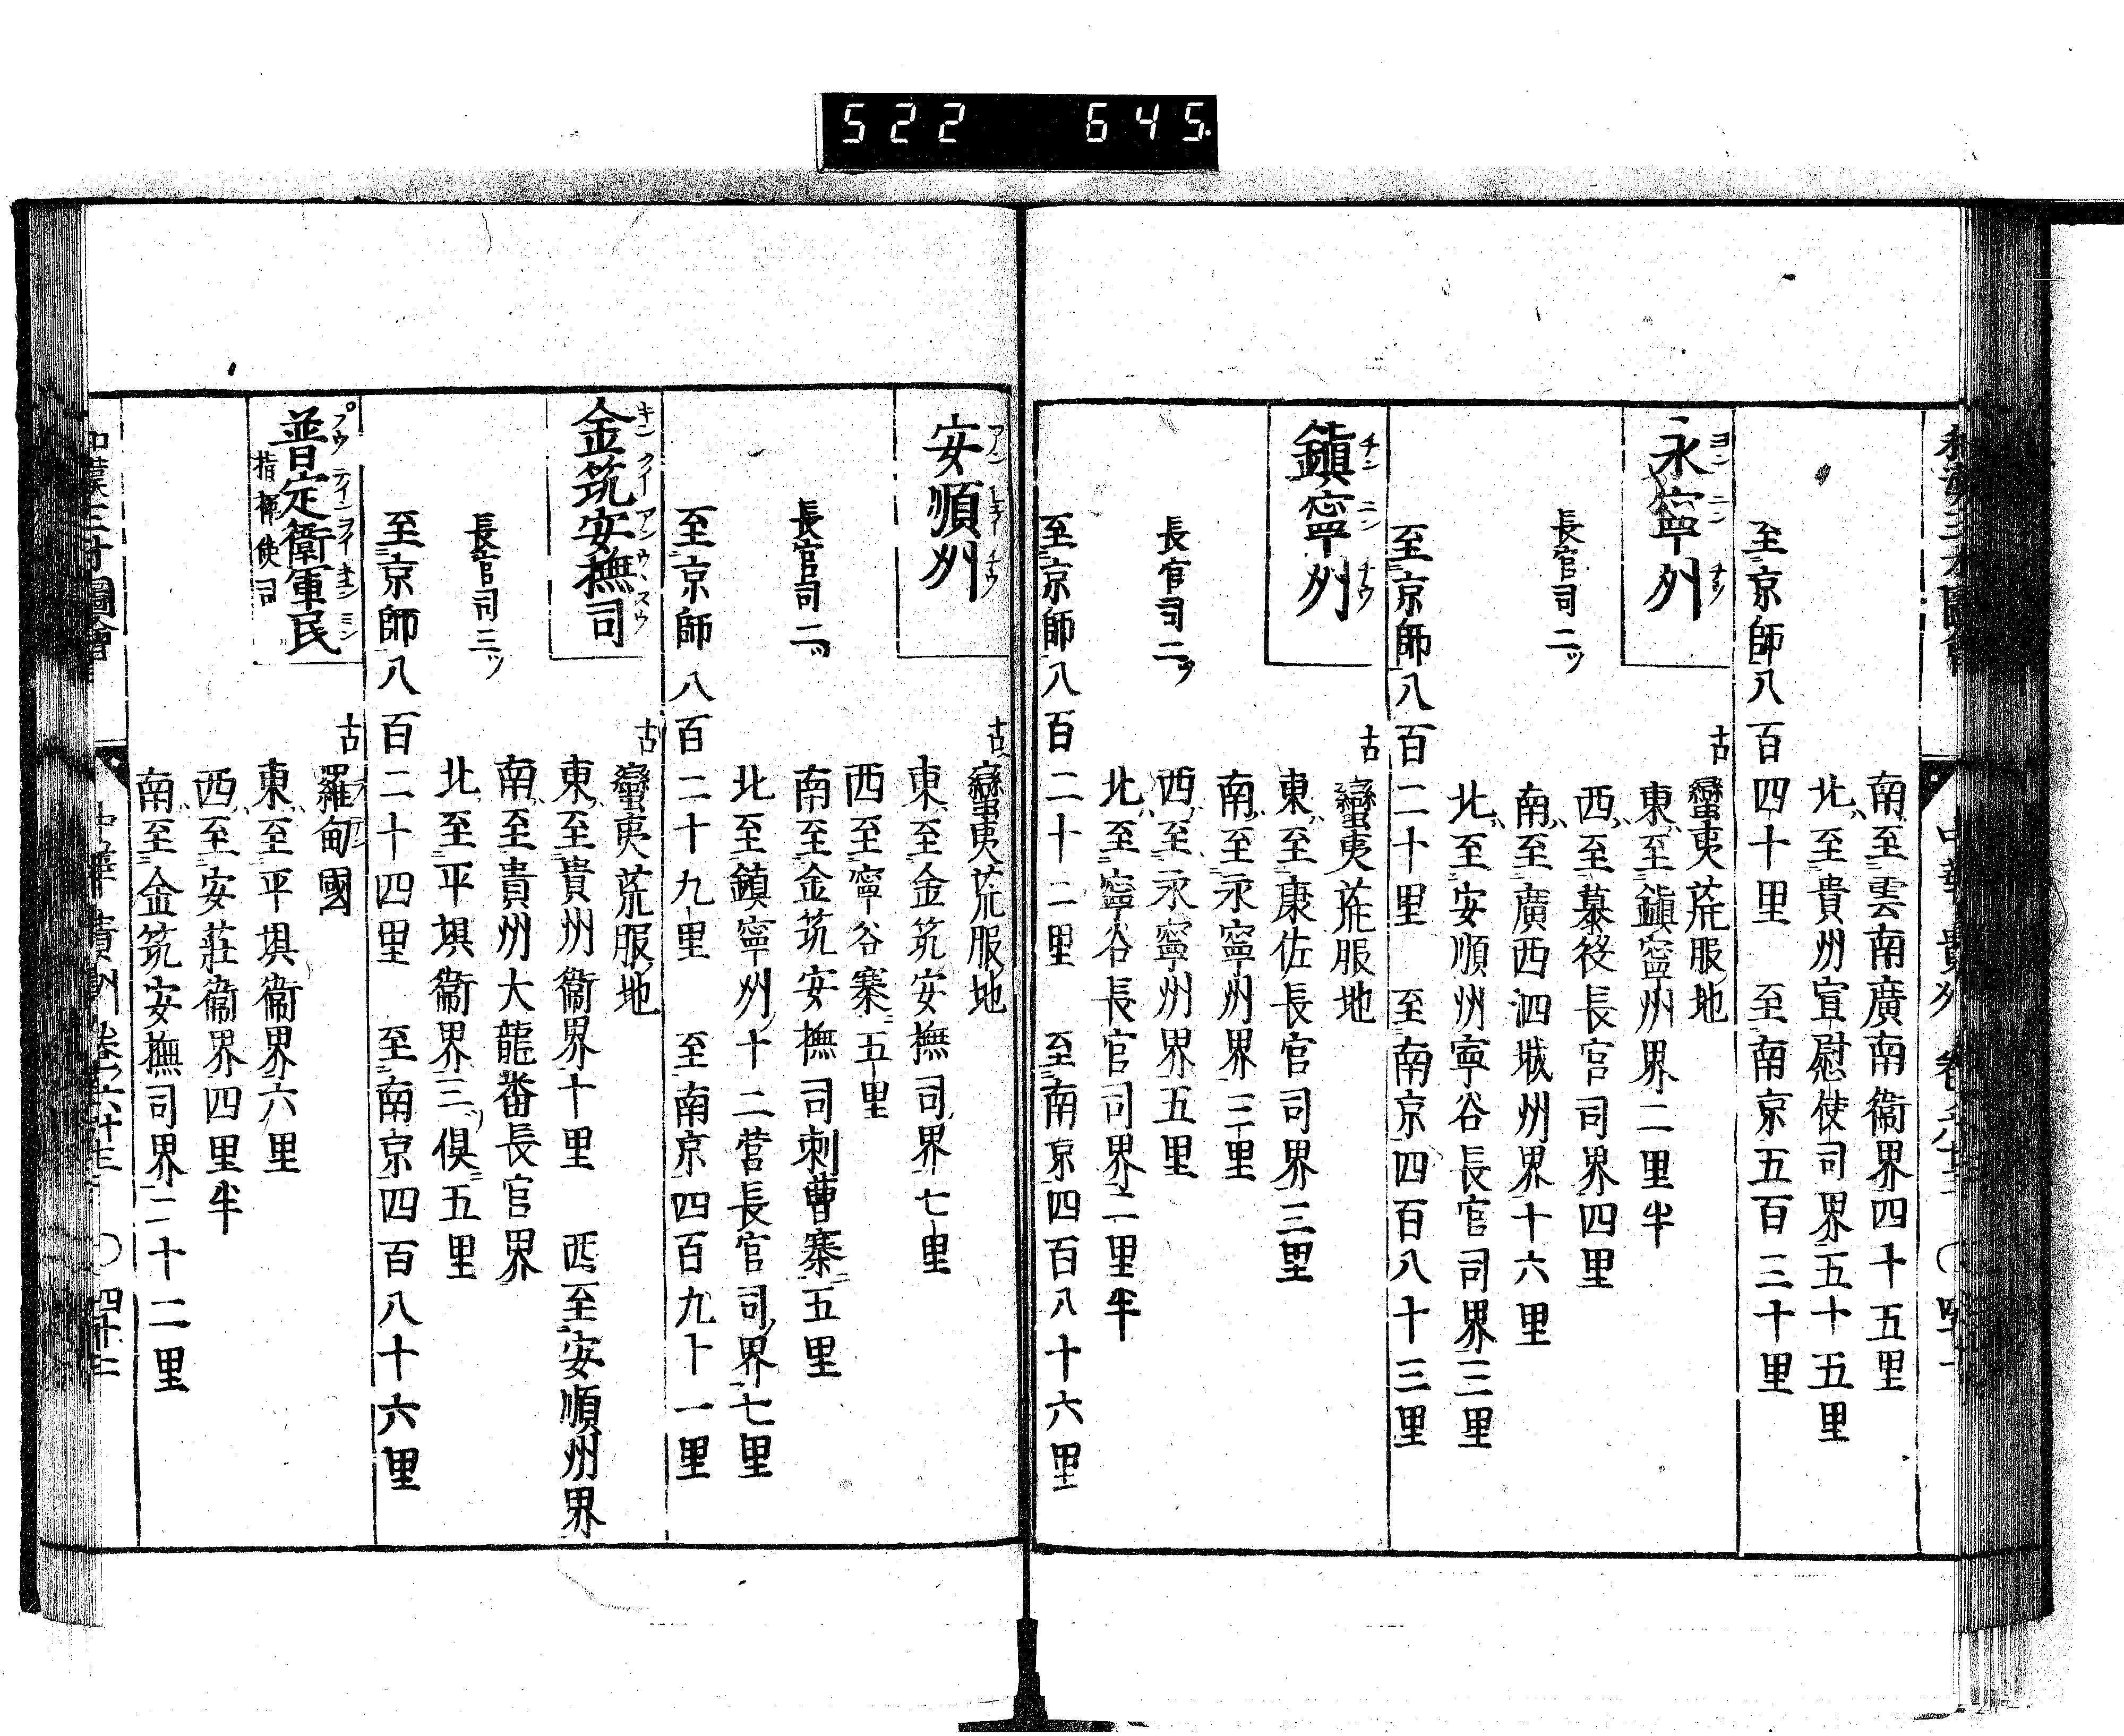 522 645.
南至雲南廣南衞界四十五里
北至貴州宣慰使司界五十五里
至京師八百四十里 至南京五百三十里
永寧州
長官司二ツ
古蠻夷荒服地
東至鎮寧州界二里半
西至慕役長官司界四里
南至廣西泗城州界十六里
北至安順州寧谷長官司界三里
至京師八百二十里 至南京四百八十三里
鎮寧州
長官司二ツ
古蠻夷荒服地
東至康佐長官司界三里
南至永寧州界三里
西至永寧州界五里
北至寧谷長官司界二里半
至京師八百二十二里 至南京四百八十六里
安順州
長官司二ツ
古蠻夷荒服地
東至金筑安撫司界七里
西至寧谷寨五里
南至金筑安撫司刺曹寨五里
北至鎮寧州十二営長官司界七里
至京師八百二十九里 至南京四百九十一里
金筑安撫司
長官司三ツ
古蠻夷荒服地
東至貴州衞界十里 西至安順州界
南至貴州大龍番長官界
北至平垻衞界三俱五里
至京師八百二十四里 至南京四百八十六里
普定衞軍民
指揮使司
古羅甸國
東至平垻衞界六里
西至安莊衞界四里半
南至金筑安撫司界二十二里